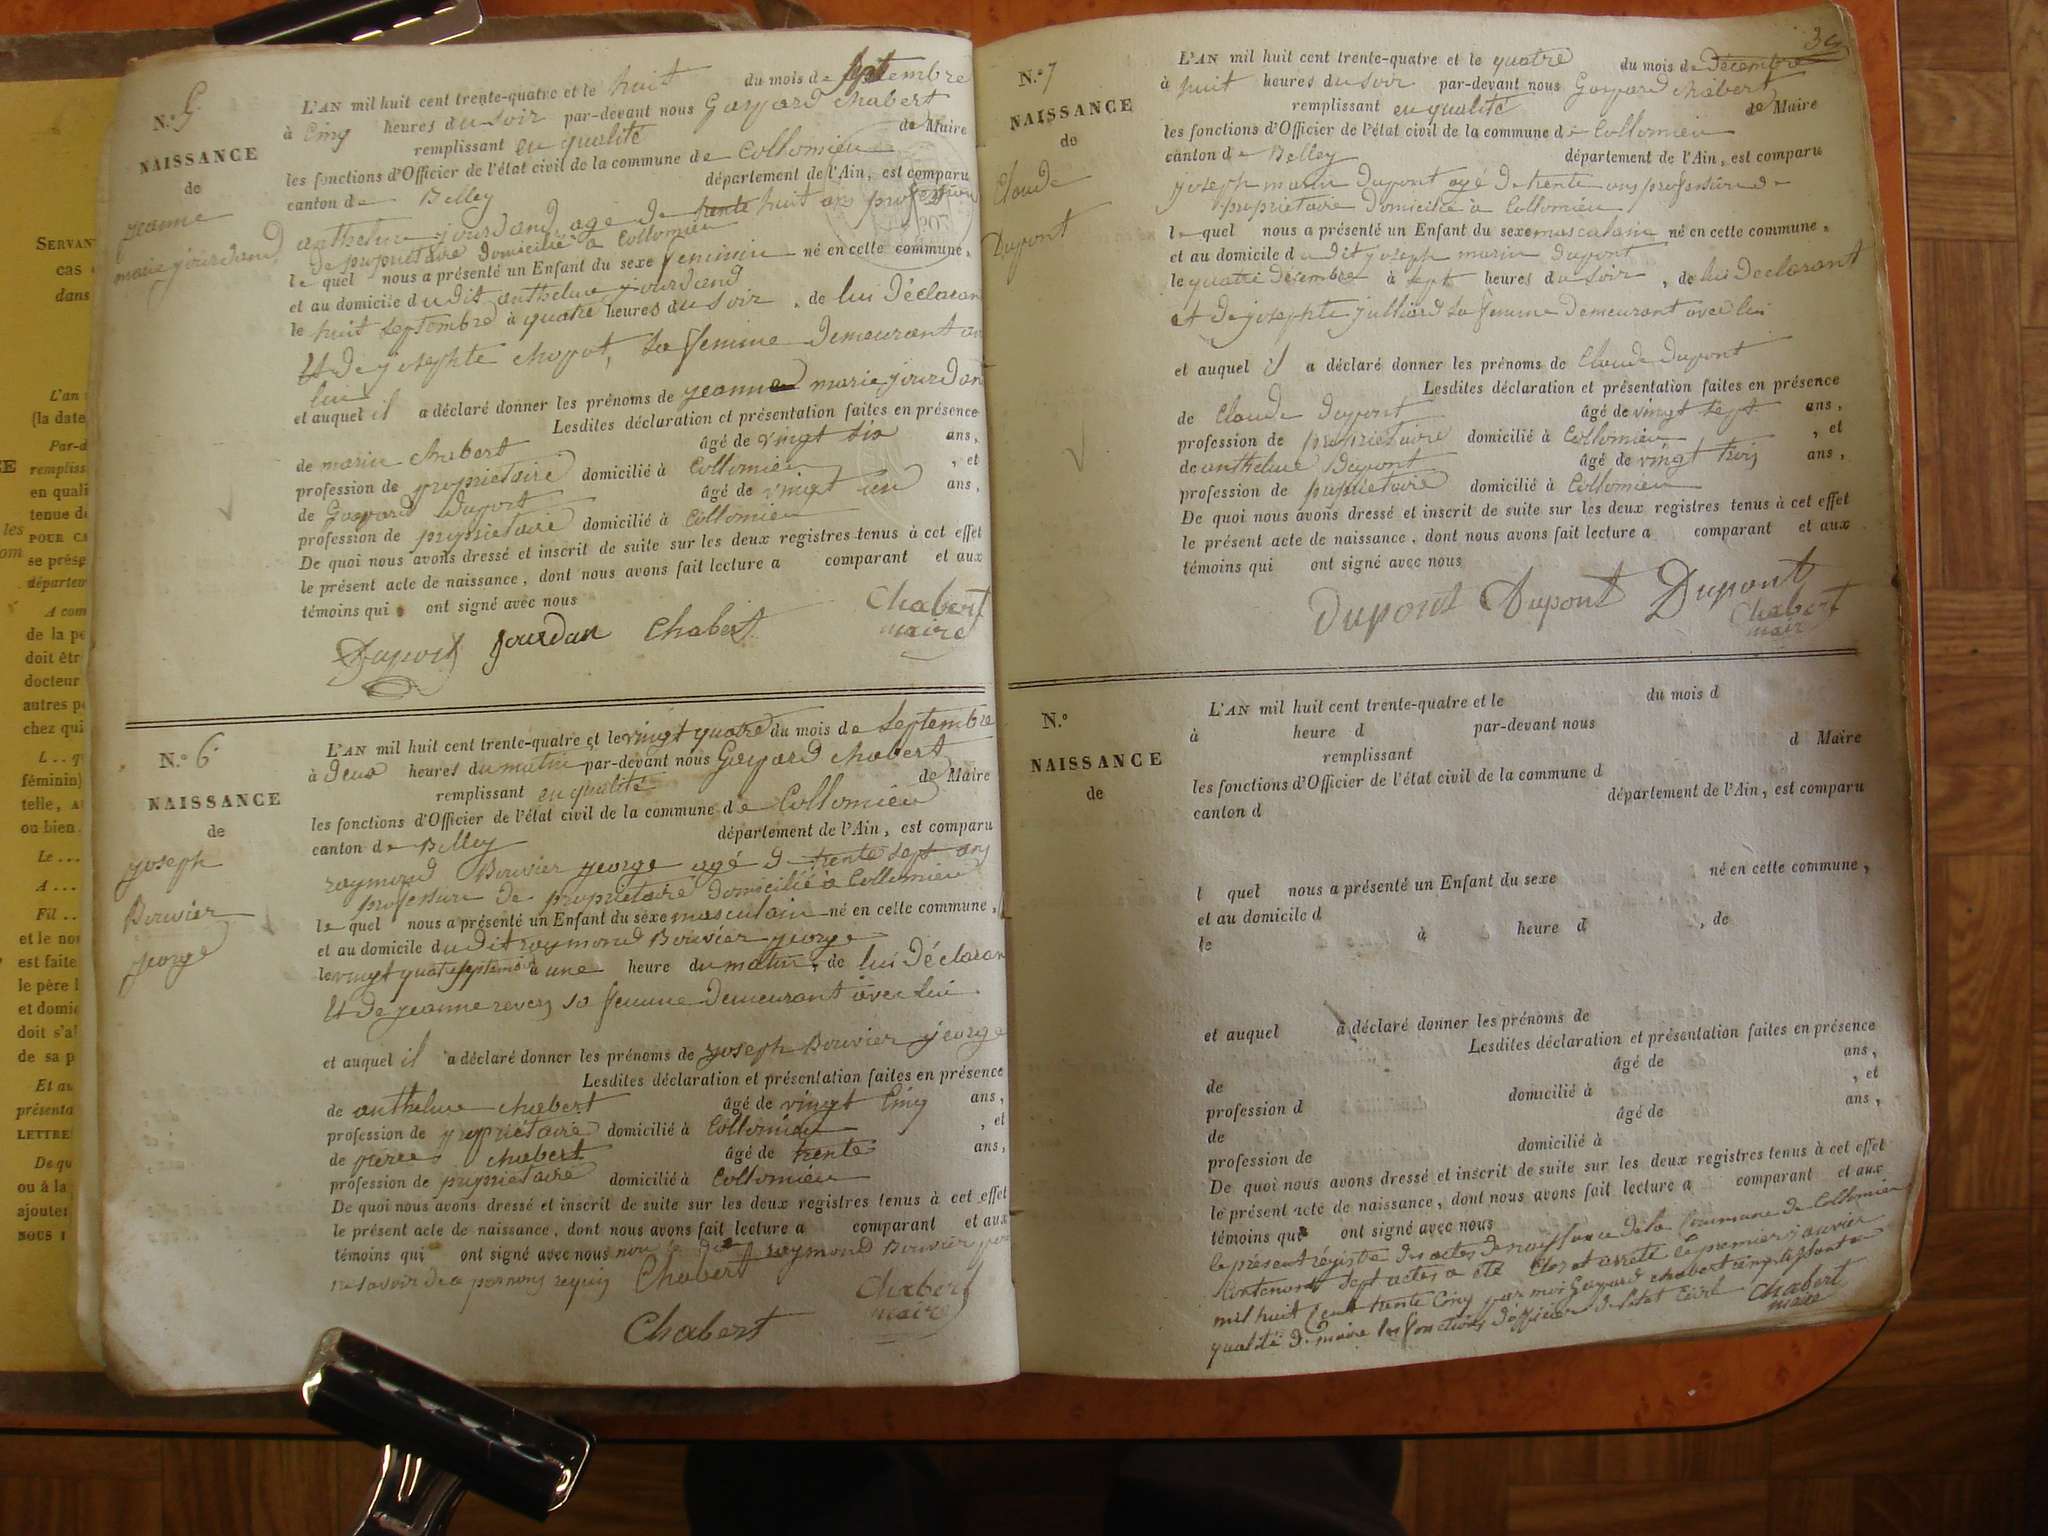 N.º 5.
NAISSANCE
de
jeanne
marie jourdand
L'AN mil huit cent trente-quatre et le huit du mois de septembre
à cinq heures du soir par-devant nous Gaspard chabert
remplissant en qualité de Maire
les fonctions d'Officier de l'état civil de la commune de Collomieu
canton de Belley département de l'Ain, est comparu
anthelme jourdand age de trente huit ans profession
de proprietaire domicilié a Collomieu
le quel nous a présenté un Enfant du sexe feminin né en cette commune,
et au domicile du dit anthelme jourdand
le huit septembre à quatre heures du soir, de lui déclarant
Et de josephte chapot, sa femme demeurant av
lui
et auquel il a déclaré donner les prénoms de jeanne marie jourdand
Lesdites déclaration et présentation faites en présence
de marin chabert âgé de vingt six ans,
profession de proprietaire domicilié à Collomieu, et
de Gaspard Dupont âgé de vingt un ans,
profession de proprietaire domicilié à Collomieu
De quoi nous avons dressé et inscrit de suite sur les deux registres tenus à cet effet
le présent acte de naissance, dont nous avons fait lecture a comparant et aux
témoins qui ont signé avec nous
Dupont jourdan Chabert Chabert
maire
N.º 6.
NAISSANCE
de
joseph
Bouvier
george
L'AN mil huit cent trente-quatre et le vingt quatre du mois de septembre
à deux heures du matin par-devant nous Gaspard chabert
remplissant en qualité de Maire
les fonctions d'Officier de l'état civil de la commune de Collomieu
canton de Belley département de l'Ain, est comparu
raymond Bouvier george agé d trente sept ans
profession de proprietaire domicilié a Collomieu
le quel nous a présenté un Enfant du sexe masculain né en cette commune,
et au domicile du dit raymond Bouvier george
le vingt quatre septembre à une heure du matin, de lui déclaran
Et de jeanne sa femme demeurant avec lui
et auquel il a déclaré donner les prénoms de joseph Bouvier george
Lesdites déclaration et présentation faites en présence
de anthelme chabert âgé de vingt cinq ans,
profession de proprietaire domicilié à Collomieu, et
de pierre chabert âgé de trente ans,
profession de proprietaire domicilié à Collomieu
De quoi nous avons dressé et inscrit de suite sur les deux registres tenus à cet effet
le présent acte de naissance, dont nous avons fait lecture a comparant et aux
témoins qui ont signé avec nous non le dit raymond Bouvier pour
ne savoir de ce par nous requis Chabert Chabert
maire
Chabert
N.º 7
NAISSANCE
de
Claude
Dupont
L'AN mil huit cent trente-quatre et le quatre du mois de décembre
à huit heures du soir par-devant nous Gaspard chabert
remplissant en qualité de Maire
les fonctions d'Officier de l'état civil de la commune de Collomieu
canton de Belley département de l'Ain, est comparu
joseph marin Dupont agé de trente ans profession de
proprietaire domicilié a Collomieu
le quel nous a présenté un Enfant du sexe masculain né en cette commune,
et au domicile du dit joseph marin Dupont
le quatre décembre à sept heures du soir, de lui déclarant
et de josephte julliard sa femme demeurant avec lui
et auquel il a déclaré donner les prénoms de Claude Dupont
Lesdites déclaration et présentation faites en présence
de Claude Dupont âgé de vingt sept ans,
profession de proprietaire domicilié à Collomieu, et
de anthelme Dupont âgé de vingt trois ans,
profession de proprietaire domicilié à Collomieu
De quoi nous avons dressé et inscrit de suite sur les deux registres tenus à cet effet
le présent acte de naissance, dont nous avons fait lecture a comparant et aux
témoins qui ont signé avec nous
Dupont Dupont Dupont
Chabert
maire
N.º
NAISSANCE
de
L'AN mil huit cent trente-quatre et le du mois d
à heure d par-devant nous
remplissant d Maire
les fonctions d'Officier de l'état civil de la commune d
canton d département de l'Ain, est comparu
l quel nous a présenté un Enfant du sexe né en cette commune,
et au domicile d
le à heure d, de
et auquel a déclaré donner les prénoms de
Lesdites déclaration et présentation faites en présence
de âgé de ans,
profession d domicilié à, et
de âgé de ans,
profession de domicilié à
De quoi nous avons dressé et inscrit de suite sur les deux registres tenus à cet effet
le présent acte de naissance, dont nous avons fait lecture a comparant et aux
témoins qui ont signé avec nous
le présent régistre des actes de naissance de la commune de Collomieu
contenant sept actes a été clos et arrété le premier janvier
mil huit cent trente cinq par moi Gaspard chabert remplissant en
qualité d maire les fonctions d'officier de l'état civil Chabert
maire
SERVAN
cas
dans
L'an
(la date
Par-d
rempliss
en quali
tenue d
POUR CA
se prése
départem
A com
de la pe
doit êtr
docteur
autres p
chez qui
L .. q
féminin)
telle, A
ou bien
Le ...
A ...
Fil ..
et le no
est faite
le père l
et domic
doit s'a
de sa p
Et au
présenta
LETTRE
De qu
ou à la
ajouter
NOUS